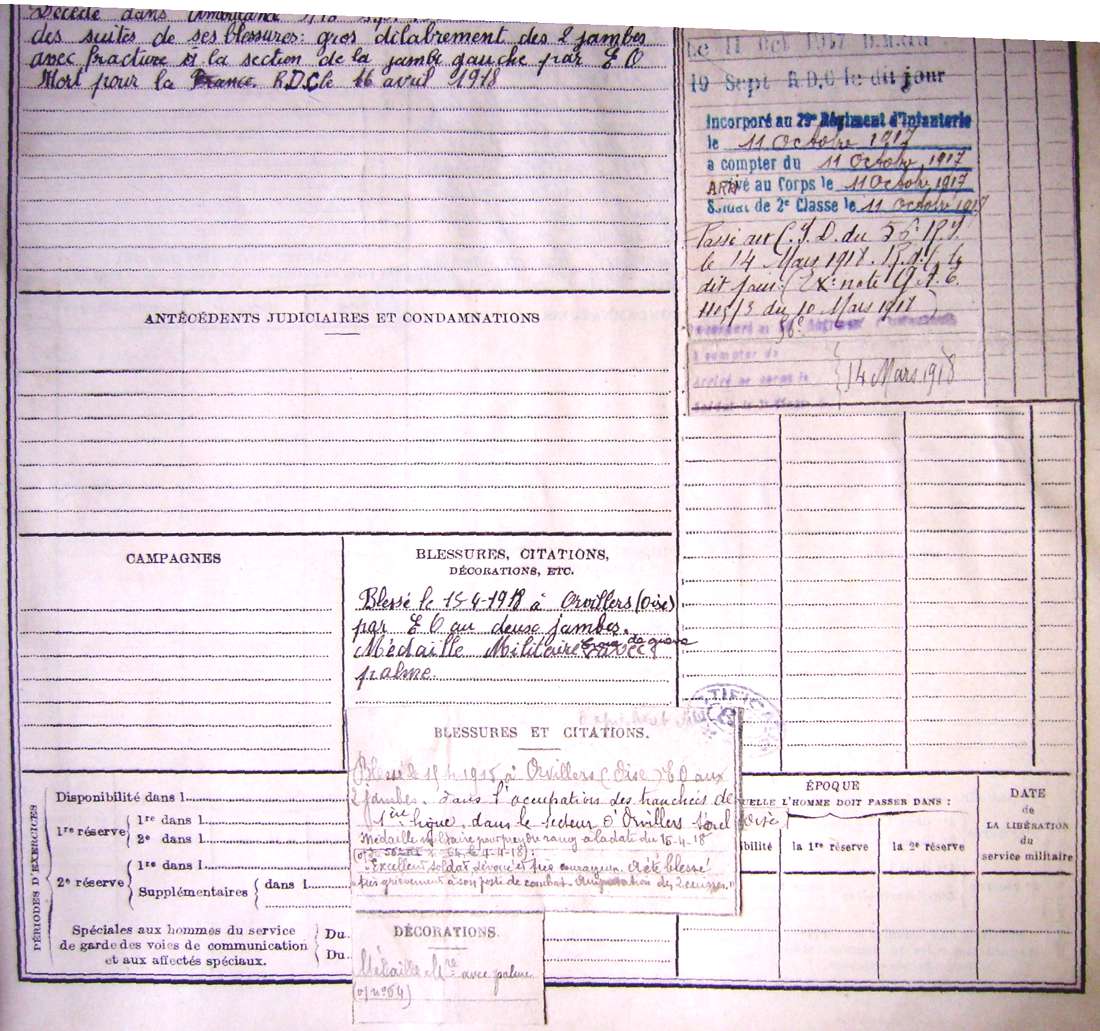 Décédé dans
des suites de ses blessures: gros délabrement des 2 jambes
avec fracture et la section de la jambe gauche par E O
Mort pour la France. R.D.C le 16 avril 1918
Le 11 Oct 1917
19 Sept R.D.C le dit jour
Incorporé au 29e Régiment d'Infanterie
le 11 Octobre 1917
a compter du 11 Octobre 1917
Arrivé au Corps le 11 Octobre 1917
Soldat de 2e Classe le 11 Octobre 1917
Passé au C.I.D. du 56e R.I.
le 14 Mars 1918.
dit jour.
du 10 Mars 1918
56e
à compter du
Arrivé au corps le
14 Mars 1918
ANTÉCÉDENTS JUDICIAIRES ET CONDAMNATIONS
CAMPAGNES
BLESSURES, CITATIONS,
DÉCORATIONS, ETC.
Blessé le 15-4-1918 à Orvillers (Oise)
par E O au deux jambes.
Médaille Militaire Croix de guerre
palme.
BLESSURES ET CITATIONS.
Blessé le 15 4 1918 à Orvillers (Oise) E O aux
2 jambes. Dans l'occupations des tranchées de
1ère ligne dans le secteur d'Orvillers Sorel (Oise)
Médaille militaire pour prendre rang à la date du 15-4-18
Excellent soldat dévoué et très courageux. A été blessé
très grièvement à son poste de combat. Amputation des 2 cuisses."
DÉCORATIONS.
Médaille Mre avec palme
(o/ no 64)
PÉRIODES D'EXERCICES
Disponibilité dans l
1re réserve
1re dans l
2e dans l
2e réserve
1re dans l
Supplémentaires
dans l
Spéciales aux hommes du service
de garde des voies de communication
et aux affectés spéciaux.
Du
Du
ÉPOQUE
UELLE L'HOMME DOIT PASSER DANS :
ibilité
la 1re réserve
la 2e réserve
DATE
de
LA LIBÉRATION
du
service militaire